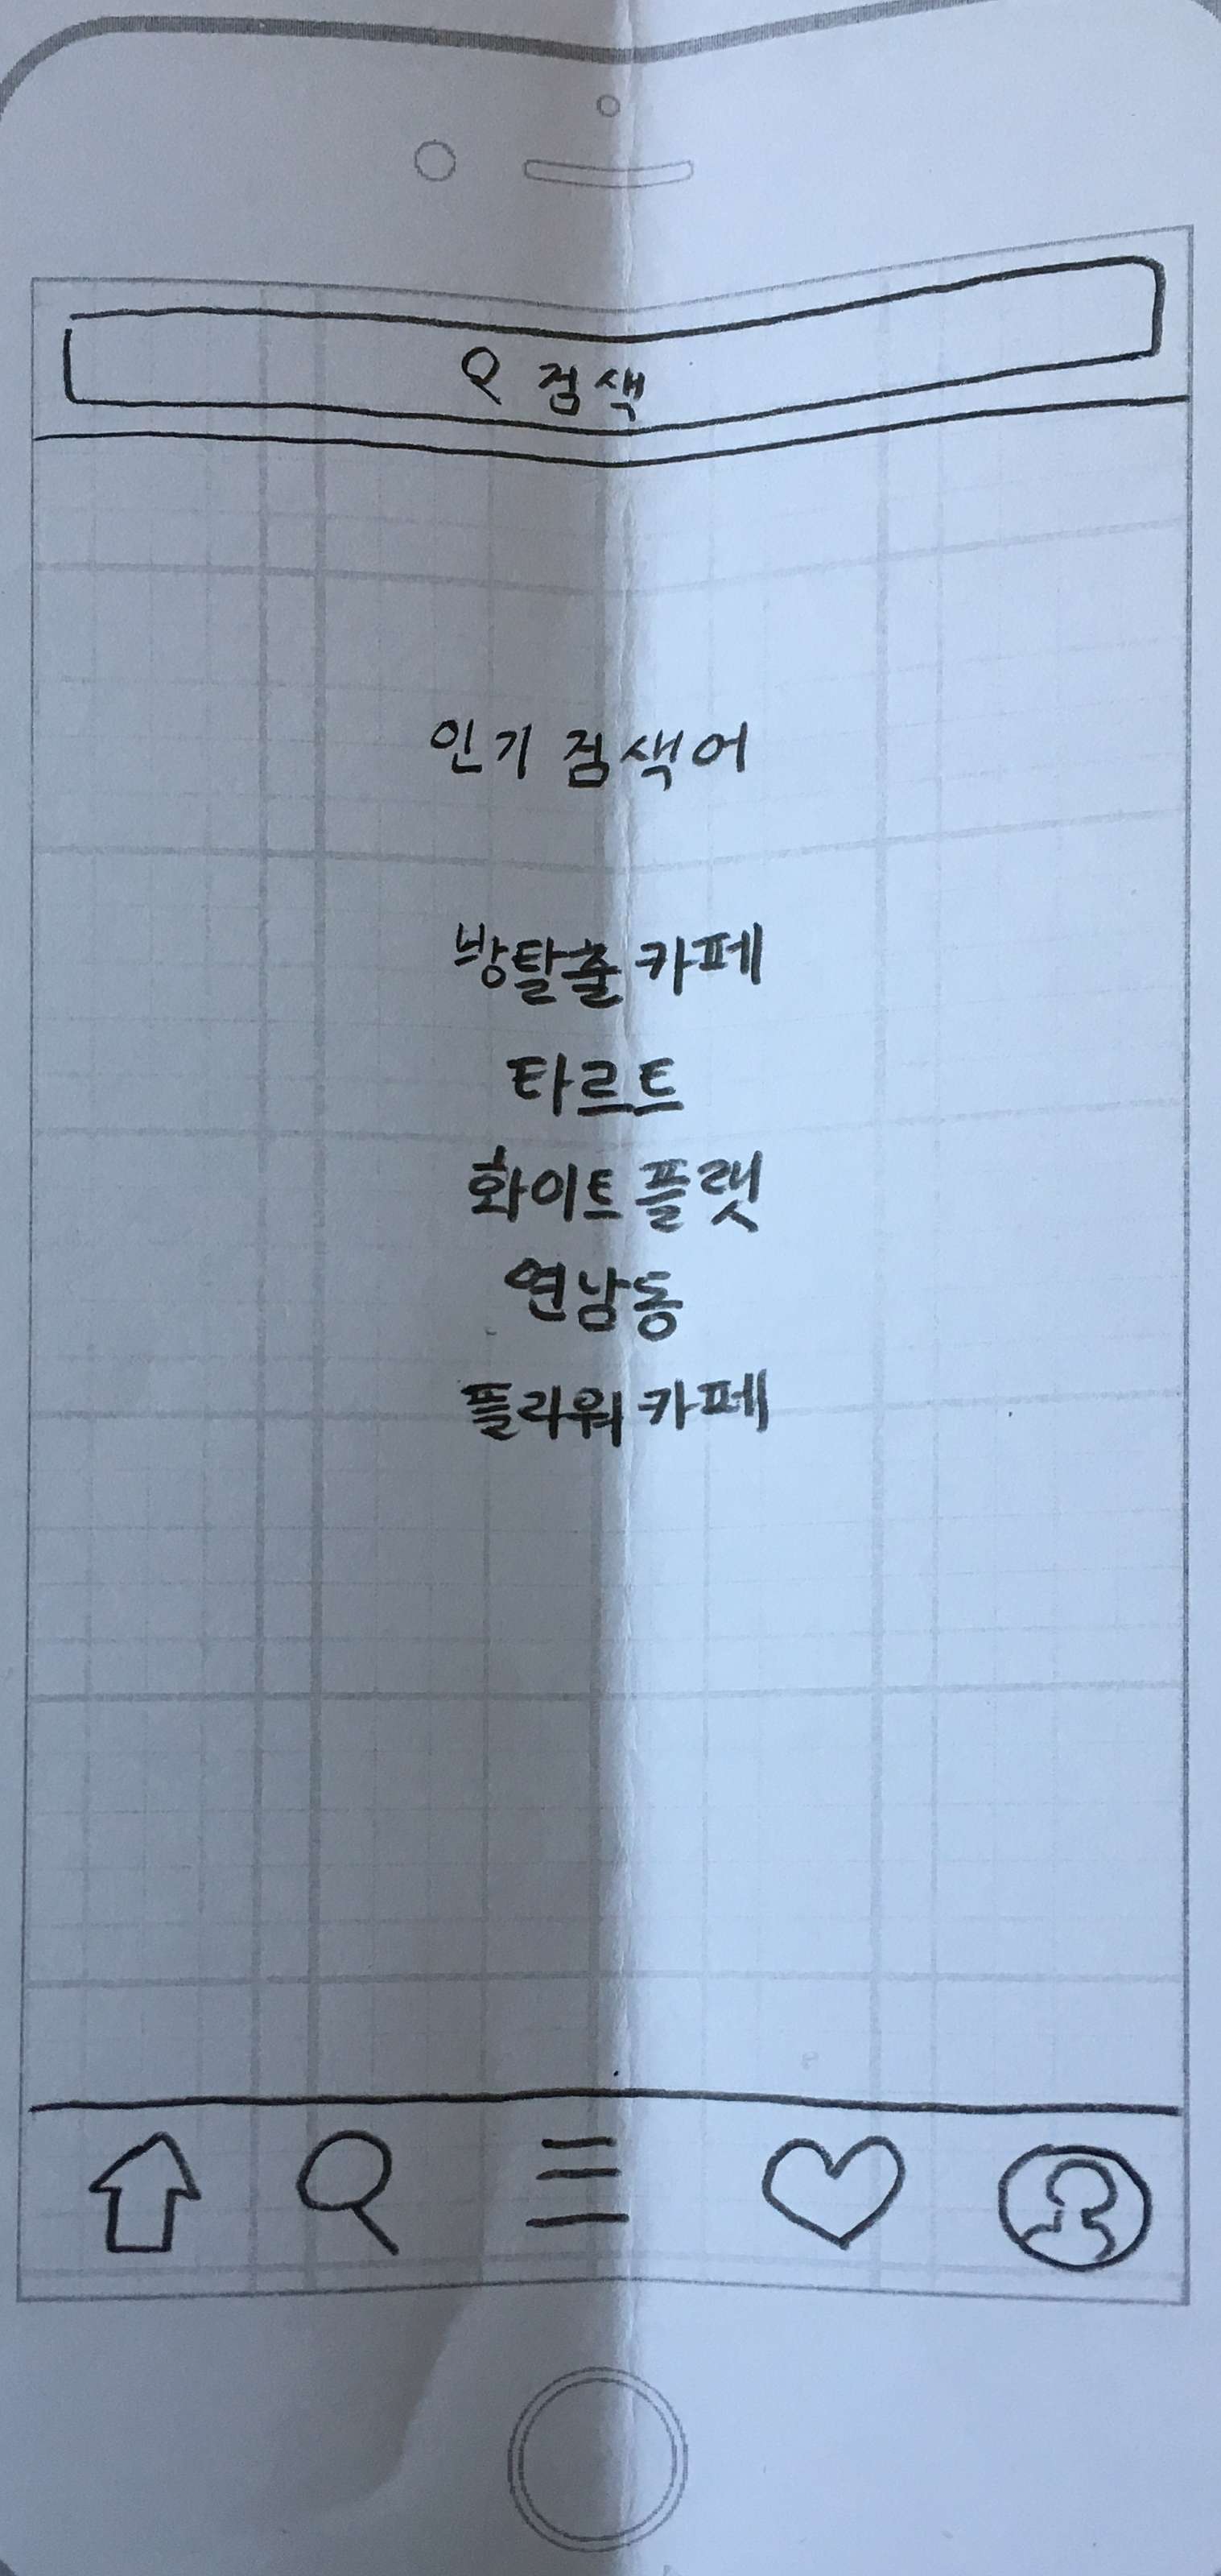 검색
인기 검색어
방탈출 카페
타르트
화이트 플랫
연남동
플라워 카페